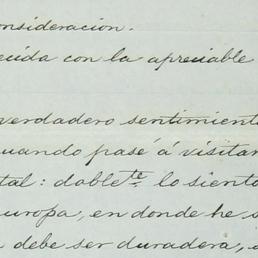 onsideracion.
cida con la apreciable
verdadero sentimient
uando pasé á visitar
tal: doblete lo siento
uropa, en donde he s
debe ser duradera,